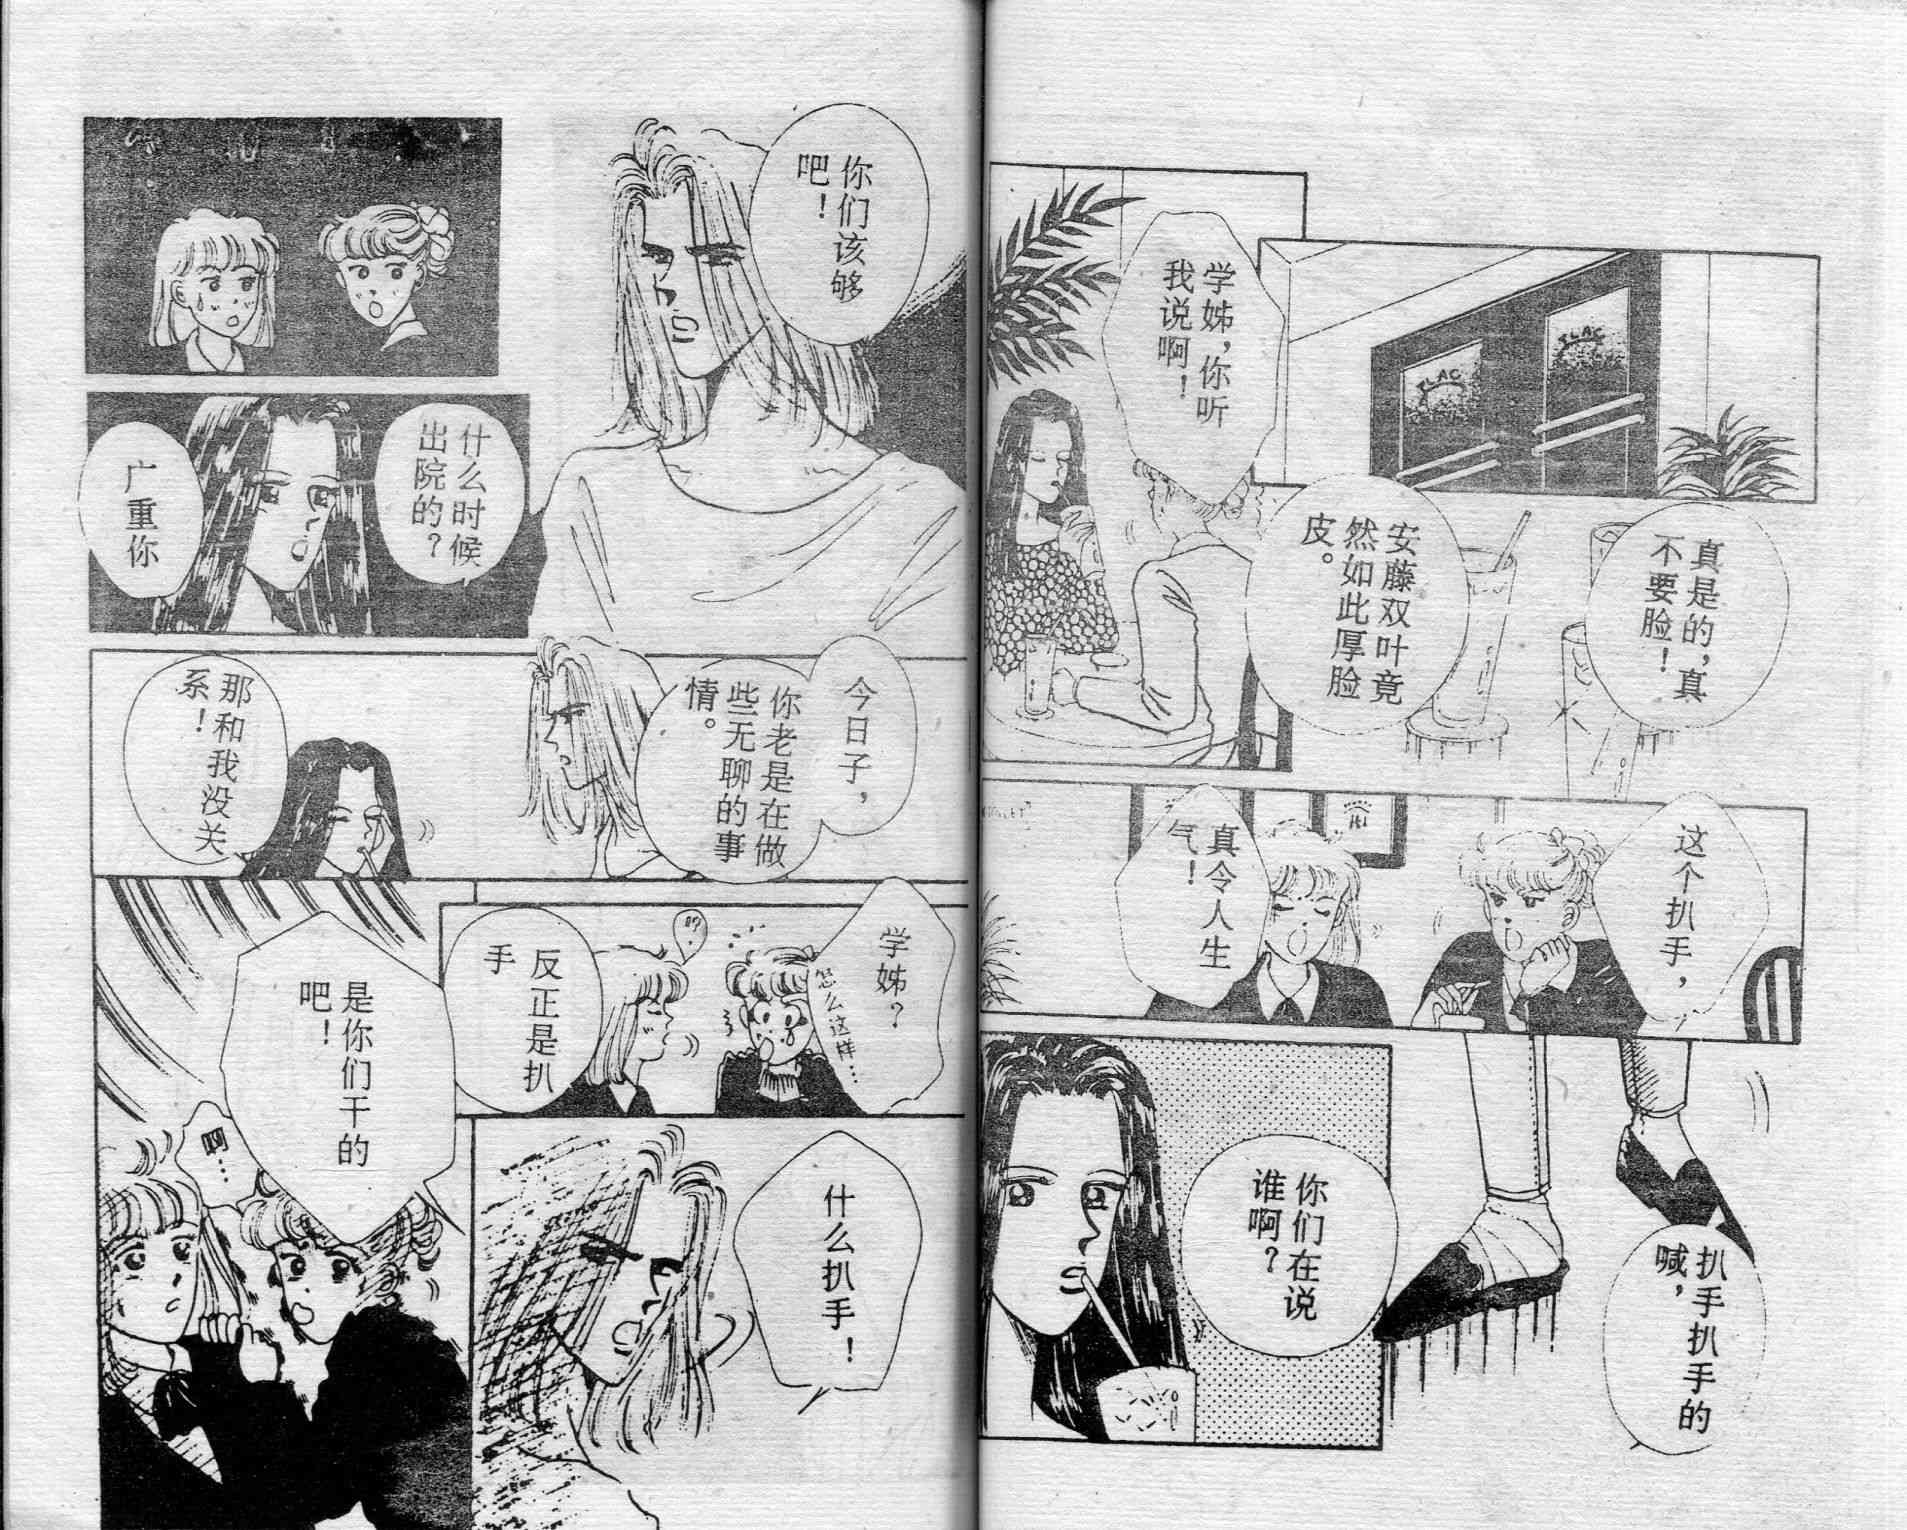 真是的，真
不要脸！
安藤双叶竟
然如此厚脸
皮。
学姊，你听
我说啊！
FLAC
FLAC
这个扒手，
真令人生
气！
扒手扒手的
喊，
你们在说
谁啊？
你们该够
吧！
什么时候
出院的？
广重你
今日子，
你老是在做
些无聊的事
情。
那和我没关
系！
学姊？
怎么这样…
啊?
反正是扒
手
什么扒手！
是你们干的
吧！
啊…